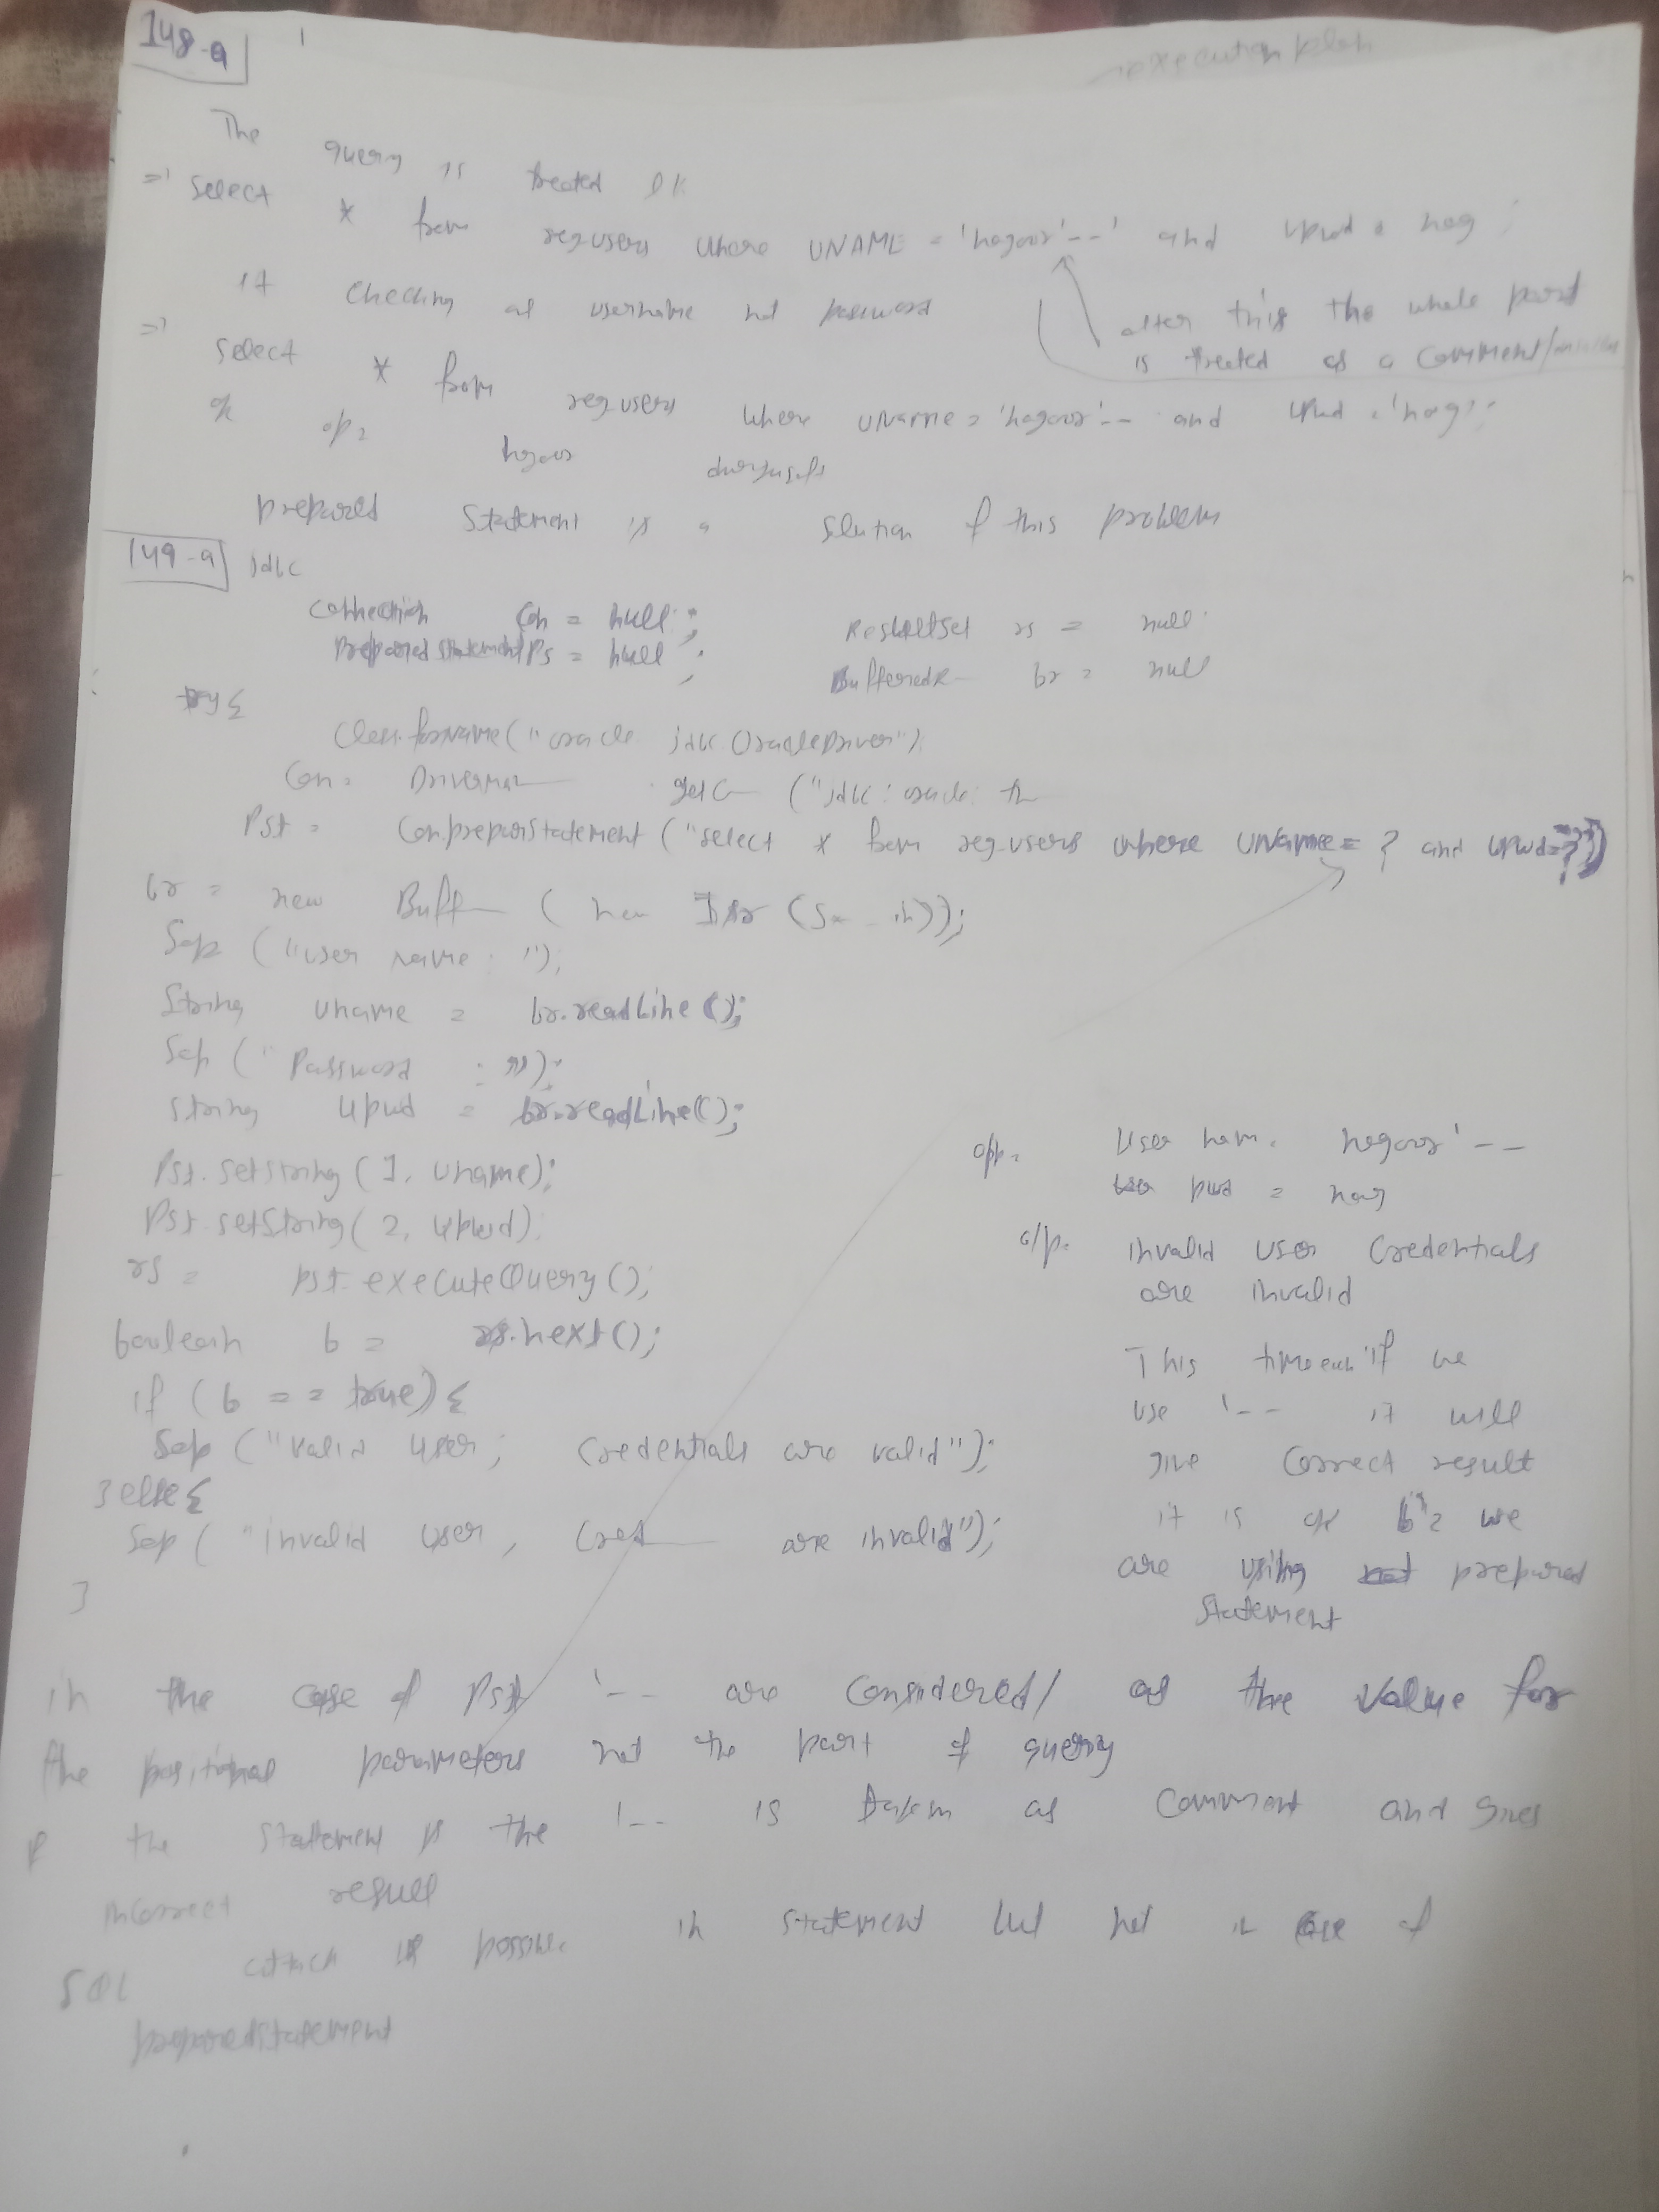 148-a
execution plan
The query is treated
=> select * from reg_users where UNAME = 'nagoor'--' and upwd = nag ;
it checking at username not password
after this the whole part
is treated as a comment/
=> select * from reg_users where uname = 'nagoor'-- and upwd = 'nag';
op =
prepared statement is a solution of this problem
149-a jdbc
Connection Con = null ; ResultSet rs = null
PreparedStatement Ps = null ; BufferedR br = null
try{
Class.forName("oracle jdbc.OracleDriver");
Con = Driverman getC ("jdbc : oracle : th
Pst = Con.prepareStatement ("select * from reg_users where UName = ? and upwd=?");
br = new Buff ( new ISr (Sn in));
Sop ("user name : ");
String uname = br.readLine();
Sop (" Password : ");
String upwd = br.readLine();
Pst.setString (1, uname);
Pst.setString( 2, upwd);
rs = pst.executeQuery ();
boolean b = rs.next();
if (b == true) {
Sop ("valid user, credentials are valid");
} else {
Sop ( "invalid user, cred are invalid");
}
opp = User nam = nagoor' --
pwd = nag
o/p = invalid user credentials
are invalid
This time even if we
use '-- it will
give correct result
it is of b'z we
are using prepared
statement
in the case of Pst '-- are considered/ as the value for
the positional parameters not the part of query
if the statement is the '-- is taken as comment and gives
incorrect result
SQL attack is possible in statement but not in case of
preparedstatement